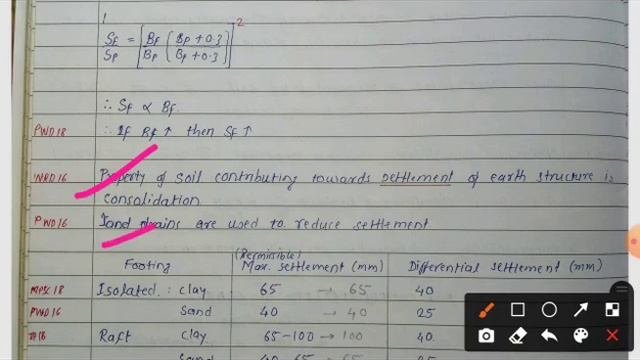 1
Sf/Sp = [Bf/Bp (Bp+0.3 / Bf+0.3)]²
∴ Sf ∝ Bf
PWD18 ∴ If Bf ↑ then Sf ↑
WRD16 Property of soil contributing towards settlement of earth structure is
consolidation
PWD16 Sand drains are used to reduce settlement
Footing (Permissible) Max. settlement (mm) Differential settlement (mm)
MPSC18 Isolated : Clay 65 → 65 40
PWD16 Sand 40 → 40 25
Raft Clay 65-100 → 100 40
Sand 40-65 → 65